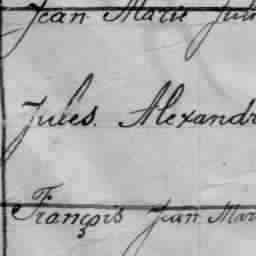 Jean Marie Juli
Jules. Alexandr
François Jean Mari